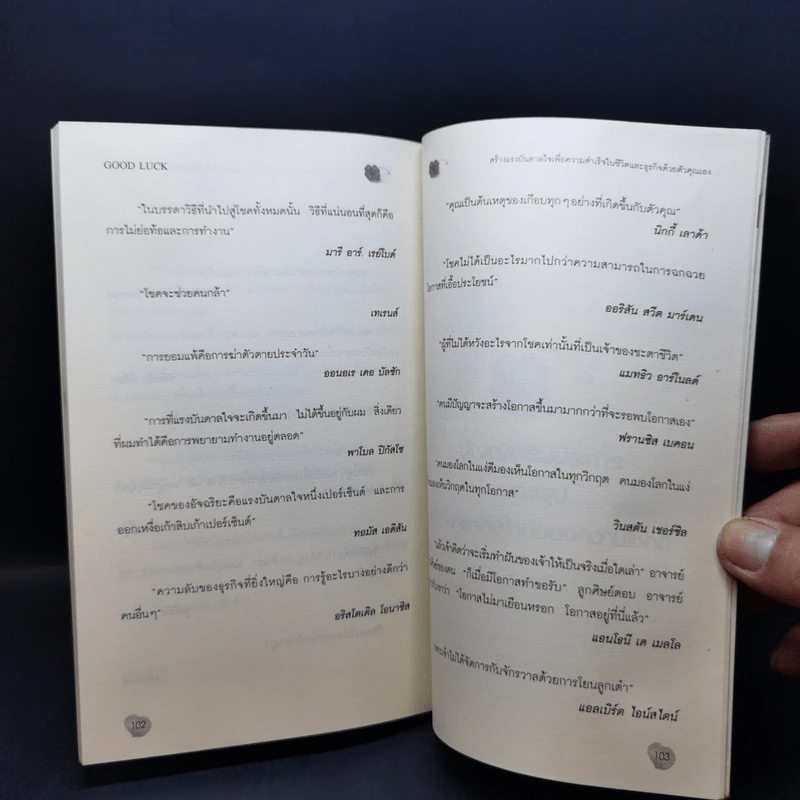 GOOD LUCK
"ในบรรดาวิธีที่นำไปสู่โชคทั้งหมดนั้น วิธีที่แน่นอนที่สุดก็คือ
การไม่ย่อท้อและการทำงาน"
มารี อาร์. เรย์โบต์
"โชคจะช่วยคนกล้า"
เทเรนส์
"การยอมแพ้คือการฆ่าตัวตายประจำวัน"
ออนอเร เดอ บัลซัก
"การที่แรงบันดาลใจจะเกิดขึ้นมา ไม่ได้ขึ้นอยู่กับผม สิ่งเดียว
ที่ผมทำได้คือการพยายามทำงานอยู่ตลอด"
พาโบล ปิกัสโซ
"โชคของอัจฉริยะคือแรงบันดาลใจหนึ่งเปอร์เซ็นต์ และการ
ออกเหงื่อเก้าสิบเก้าเปอร์เซ็นต์"
ทอมัส เอดิสัน
"ความลับของธุรกิจที่ยิ่งใหญ่คือ การรู้อะไรบางอย่างดีกว่า
คนอื่นๆ"
อริสโตเติล โอนาซิส
102
สร้างแรงบันดาลใจเพื่อความสำเร็จในชีวิตและธุรกิจด้วยตัวคุณเอง
"คุณเป็นต้นเหตุของเกือบทุกๆ อย่างที่เกิดขึ้นกับตัวคุณ"
นิกกี้ เลาด้า
"โชคไม่ได้เป็นอะไรมากไปกว่าความสามารถในการฉกฉวย
โอกาสที่เอื้อประโยชน์"
ออริสัน สวีต มาร์เดน
"ผู้ที่ไม่ได้หวังอะไรจากโชคเท่านั้นที่เป็นเจ้าของชะตาชีวิต"
แมทธิว อาร์โนลด์
"คนมีปัญญาจะสร้างโอกาสขึ้นมามากกว่าที่จะรอพบโอกาสเอง"
ฟรานซิส เบคอน
"คนมองโลกในแง่ดีมองเห็นโอกาสในทุกวิกฤต คนมองโลกในแง่
มองเห็นวิกฤตในทุกโอกาส"
วินสตัน เชอร์ชิล
"แล้วเจ้าคิดว่าจะเริ่มทำฝันของเจ้าให้เป็นจริงเมื่อใดเล่า" อาจารย์
ศิษย์ของตน "ก็เมื่อมีโอกาสทำขอรับ" ลูกศิษย์ตอบ อาจารย์
ว่า "โอกาสไม่มาเยือนหรอก โอกาสอยู่ที่นี่แล้ว"
แอนโธนี เด เมลโล
"พระเจ้าไม่ได้จัดการกับจักรวาลด้วยการโยนลูกเต๋า"
แอลเบิร์ต ไอน์สไตน์
103